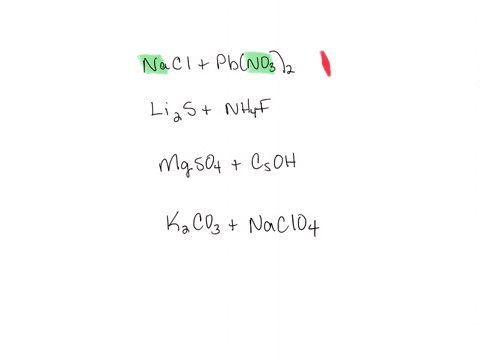 NaCl + Pb(NO₃)₂
Li₂S + NH₄F
MgSO₄ + CsOH
K₂CO₃ + NaClO₄